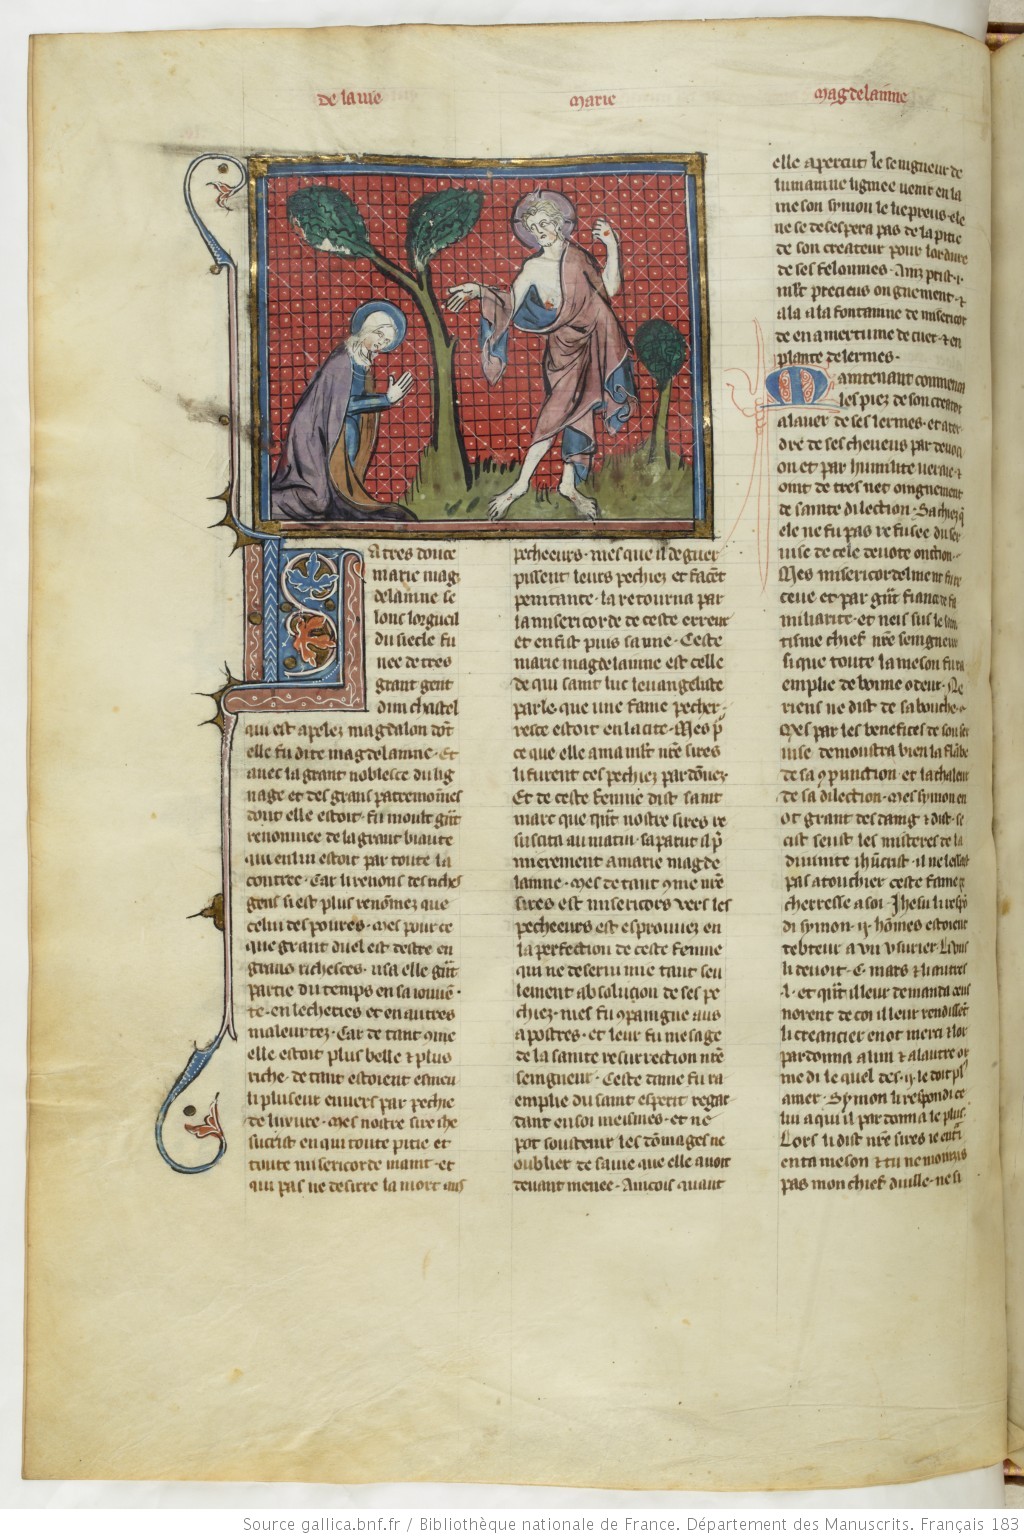 De la vie
Marie
Magdelainne
La tres douce
marie mag
delainne se
lonc lorgueil
du siecle fu
nee de tres
grant gent
dun chastel
qui est apelez magdalon dont
elle fu dite magdelainne. Et
avec la grant noblesce du lig
nage et des grans patremoines
dont elle estoit. fu moult grant
renommee de la grant biaute
qui en lui estoit par toute la
contree. Car li renons des riches
gens si est plus renomez que
celui des poures. Mes pour ce
que grant duel est destre en
grans richesces. usa elle grant
partie du temps en sa iouven
te. en lecheries et en autres
maleurtez. Car de tant 9me
elle estoit plus belle & plus
riche. de tant estoient esmeu
li pluseur envers par pechie
de luxure. Mes nostre sire ihe
sucrist en qui toute pitie et
toute misericorde maint. et
qui pas ne desirre la mort aus
pecheeurs. mes que il deguer
pissent leurs pechiez et facent
penitance. la retourna par
la misericorde de ceste erreur
et en fist puis sa une. Ceste
marie magdelainne est celle
de qui saint luc leuangeliste
parle que une fame pecher
resce estoit en la cite. Mes p
ce que elle ama ihst nre sires
li furent ses pechiez pardonez
Et de ceste femme dist saint
marc que quant nostre sires re
suscita au matin. sapatut il p
mierement a marie magde
lainne. Mes de tant 9me nre
sires est misericors vers les
pecheeurs est esprouvez en
la perfection de ceste femme
qui ne deservi mie tant seu
lement absolucion de ses pe
chiez. mes fu 9paigne aus
apostres. et leur fu mesage
de la sainte resurrection nre
seingneur. Ceste dame fu ra
emplie du saint esperit regar
dant en soi meismes. et ne
pot soustenir les domages ne
oublier de sa vie que elle avoit
devant menee. Aincois quant
elle apercut le seingneur de
lumainne lignee venir en la
meson symon le liepreus. ele
ne se desespera pas de la pitie
de son createur pour lordure
de ses felonnies. Ainz prist .i.
mlt precieus ongnement. &
ala a la fontainne de misericor
de en amertume de cuer. & en
plante de lermes.
Maintenant commenca
les piez de son creator
a laver de ses lermes. et a ter
dre de ses cheveus par devoci
on et par humilite veraie. &
oint de tres net oingnement
de sainte dilection. Sachiez q
ele ne fu pas refusee du ser
vise de cele devote onction.
Mes misericordelment fu re
ceue et par grant fiance de fa
miliarite. et neis sus le sain
tisme chief nre seingneur
si que toute la meson fu ra
emplie de bonne odeur. Ne
riens ne dist de sa bouche.
Mes par les benefices de son ser
vise demoustra bien la flabe
de sa 9punction. et la chaleur
de sa dilection. Mes symon en
ot grant desdaig & dist. se
cist seust les misteres de la
divinite ihucrist. il ne lessast
pas atouchier ceste fame pe
cherresse a soi. Jhesu li respon
di symon .ij. hommes estoient
debteur a un usurier. Li uns
li devoit .C. mars & li autres
.l. et quant il leur demanda ceus
norent de coi il leur rendissent
li creancier en ot merci & lor
pardonna a lun & a lautre or
me di le quel des .ij. le doit plus
amer. Symon li respondi ce
lui a qui il pardonna le plus.
Lors li dist nre sires ie entrai
en ta meson & tu ne moinsis
pas mon chief duille. ne si